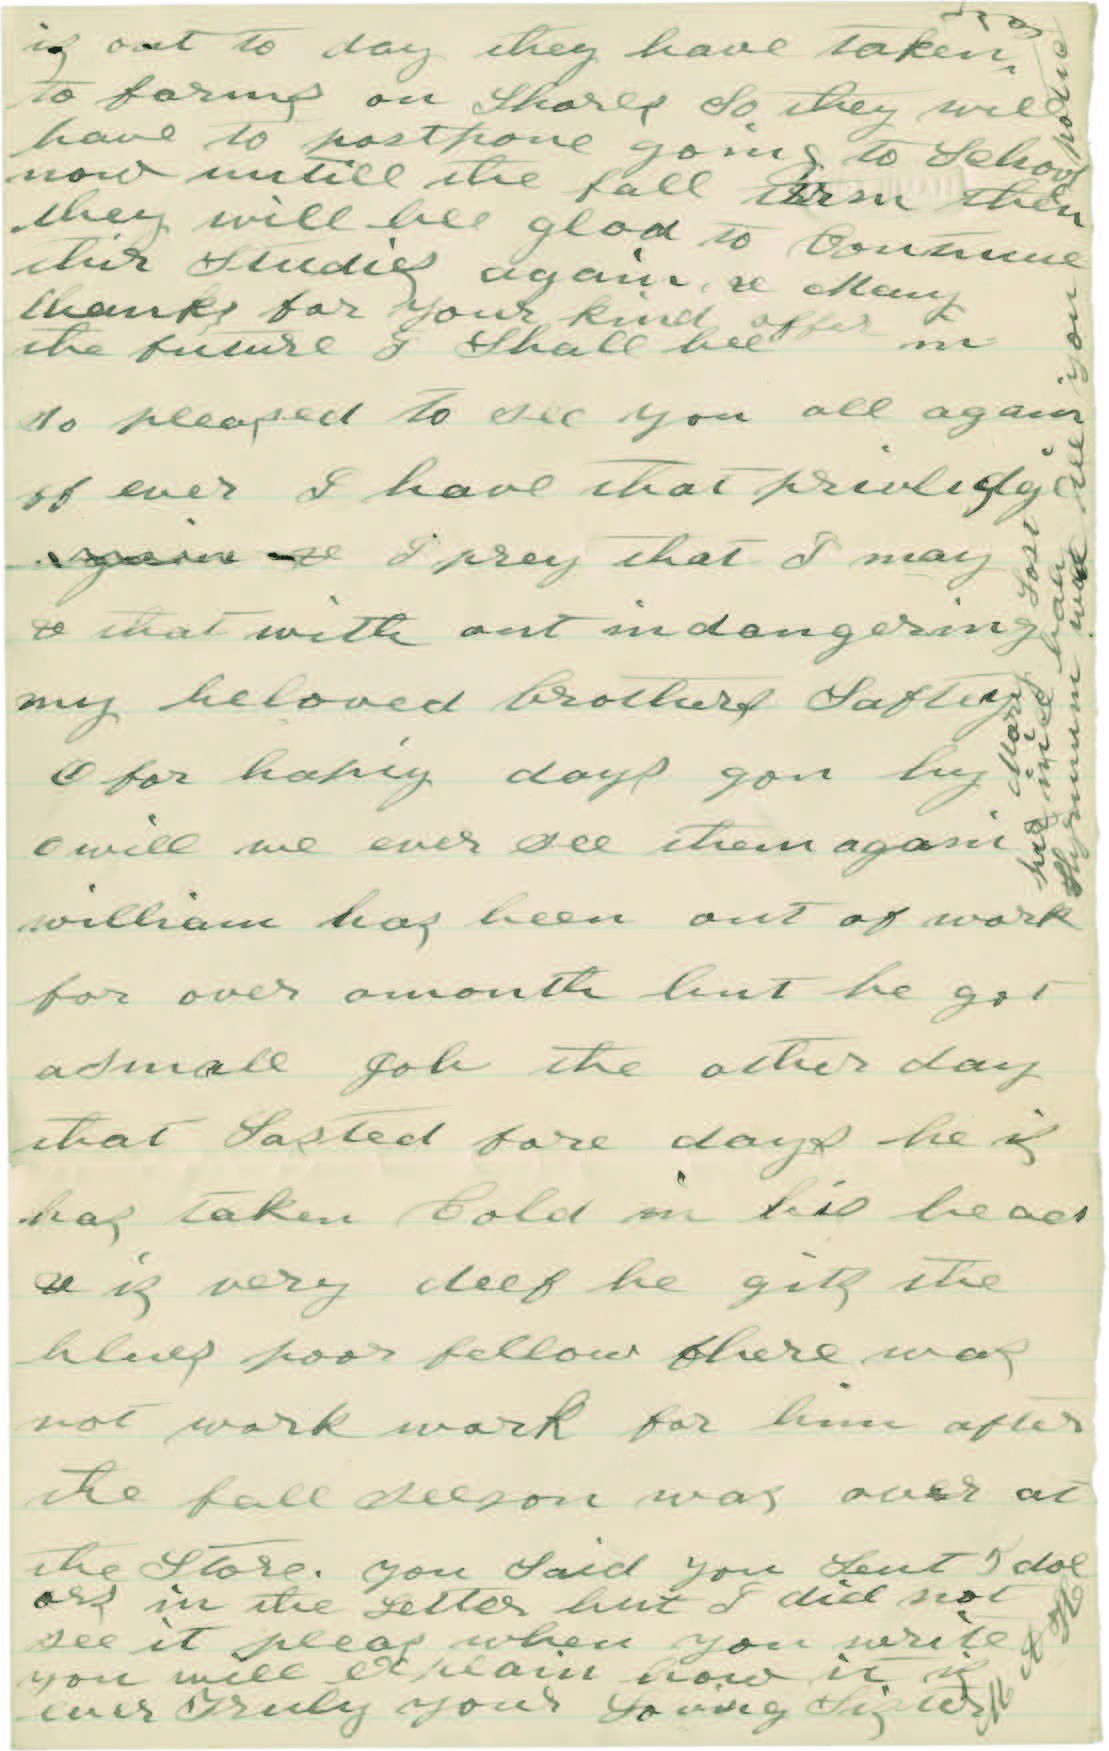 is out to day they have taken
to farms on Shares So they will
have to postpone going to School
now untill the fall term then
they will bee glad to Continue
thir Studies again, & Many
thanks for your kind offer in
the future I Shall bee
so pleased to see you all again
if ever I have that privlidge
again & I prey that I may
& that with out indangering
my beloved brothers Saftey
O for hapiy days gon by
O will we ever see them again
william has been out of work
for over amonth but he got
asmall Job the other day
that Lasted fore days he is
has taken Cold in his head
& is very deef he gits the
blues poor fellow there was
not work work for him after
the fall seeson was over at
the Store. you Said you Sent 5 dol
ars in the Letter but I did not
see it pleas when you write
you will explain how it is
ever Truly your Loving Sister
Mary Lost